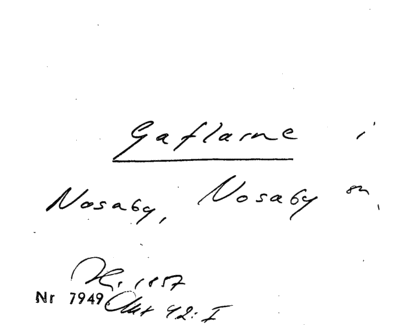 Gaflarne i
Nosaby, Nosaby sn,
1857
Nr 7949 Akt 42: I